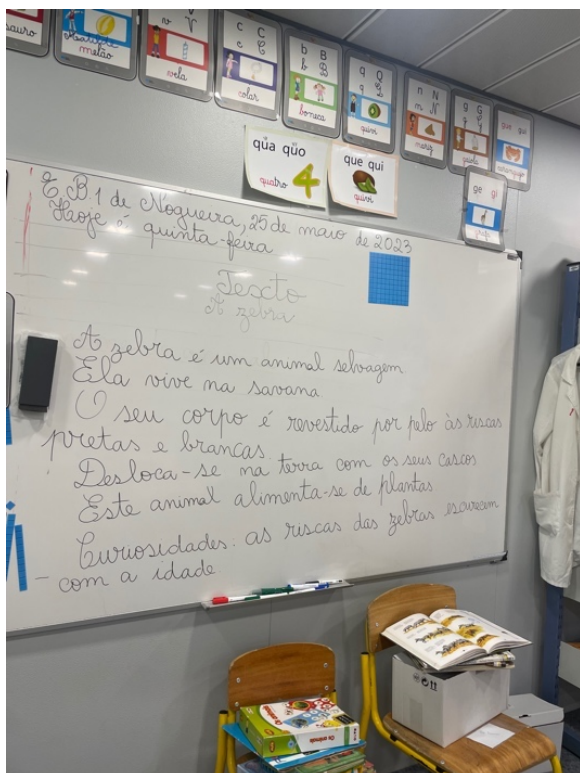 sauro
melão
v V
vela
c C
c C
colar
b B
b B
boneca
q Q
q Q
quivi
n N
n N
nariz
g G
g G
gaiola
gue gui
qüa qüo
quatro 4
que qui
quivi
ge gi
girafa
E B.1 de Nogueira, 25 de maio de 2023
Hoje é quinta-feira
Texto
A zebra
A zebra é um animal selvagem
Ela vive na savana
O seu corpo é revestido por pelo às riscas
pretas e brancas
Desloca-se na terra com os seus cascos
Este animal alimenta-se de plantas
Curiosidades: as riscas das zebras escurecem
com a idade
Os animais